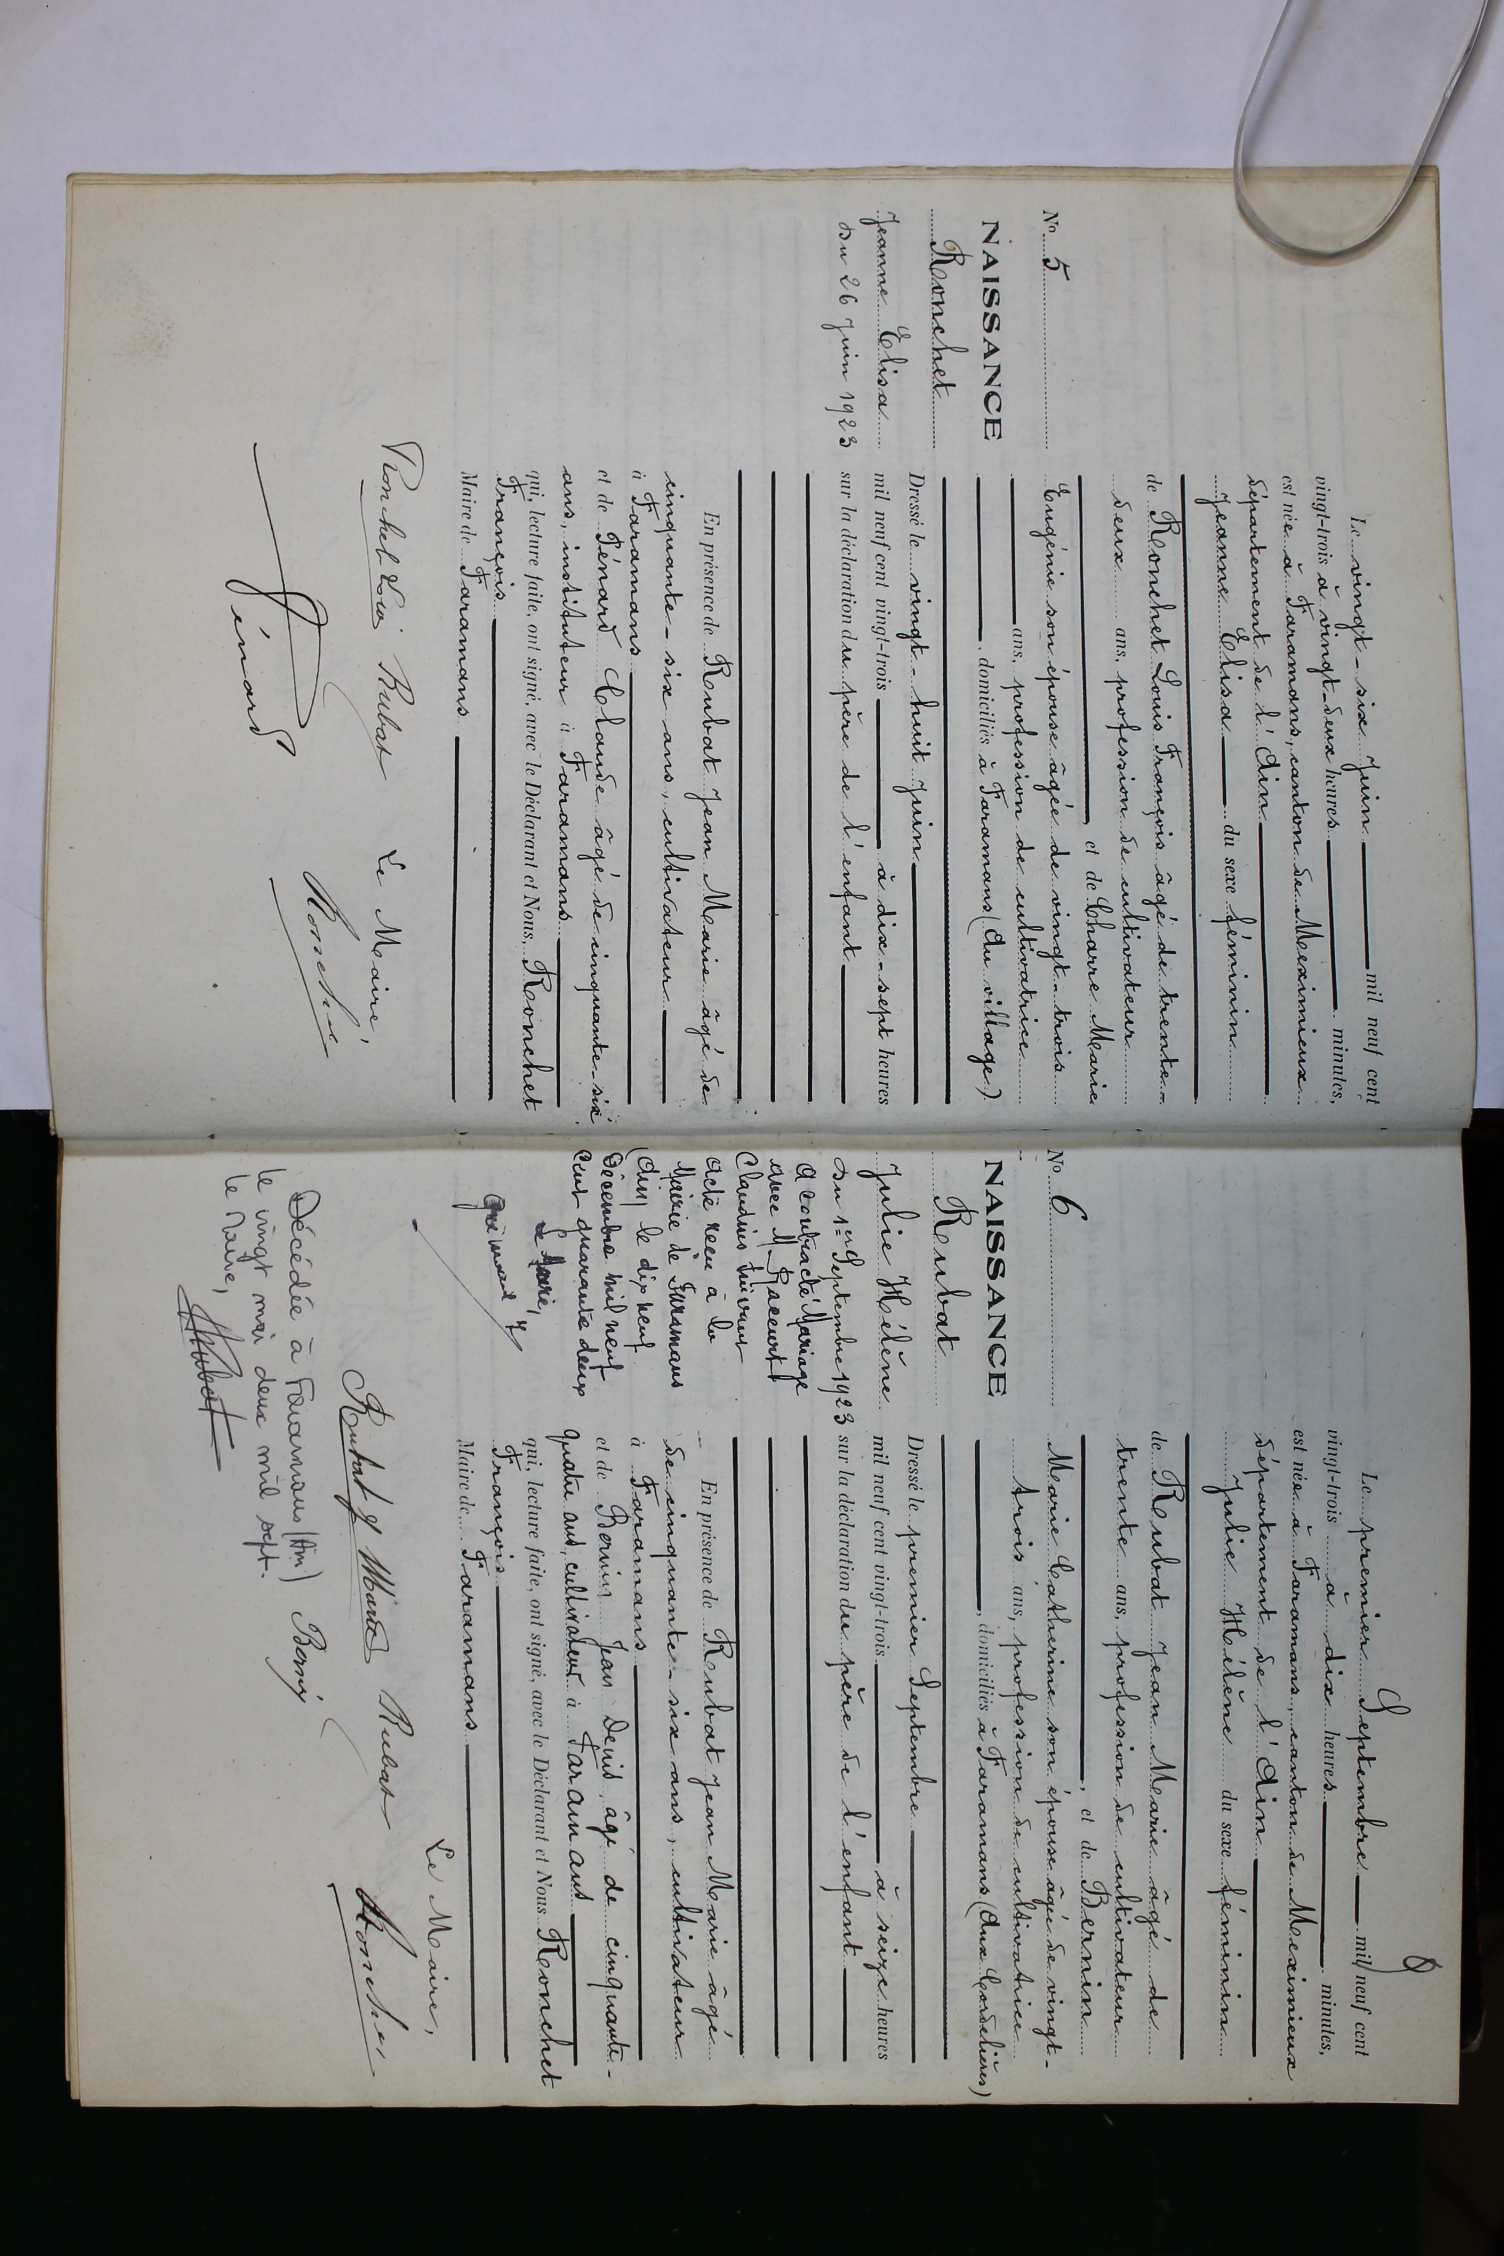 N° 5
NAISSANCE
Ronchet
Jeanne Elisa
du 26 Juin 1923
Le vingt-six Juin mil neuf cent
vingt-trois à vingt-deux heures minutes,
est née à Faramans, canton de Meximieux
département de l'Ain
Jeanne Elisa du sexe féminin
de Ronchet Louis François âgé de trente-
deux ans, profession de cultivateur
et de Charre Marie
Eugénie son épouse âgée de vingt-trois
ans, profession de cultivatrice
domiciliés à Faramans (Au village)
Dressé le vingt-huit Juin
mil neuf cent vingt-trois à dix-sept heures
sur la déclaration du père de l'enfant
En présence de Rubat Jean Marie âgé de
cinquante-six ans, cultivateur
à Faramans
et de Pénard Claude âgé de cinquante-six
ans, instituteur à Faramans
qui, lecture faite, ont signé, avec le Déclarant et Nous, Ronchet
François
Maire de Faramans
Ronchet Louis Rubat Le Maire,
Pénard Ronchet
8
N° 6
NAISSANCE
Rubat
Julie Hélène
du 1er Septembre 1923
A contracté Mariage
avec M
Claudius suivant
acte reçu à la
Mairie de Faramans
(Ain) le dix neuf
Décembre mil neuf
cent quarante deux
Le Maire,
Le premier Septembre mil neuf cent
vingt-trois à dix heures minutes,
est née à Faramans, canton de Meximieux
département de l'Ain
Julie Hélène du sexe féminin
de Rubat Jean Marie âgé de
trente ans, profession de cultivateur
et de Bernin
Marie Catherine son épouse âgée de vingt-
trois ans, profession de cultivatrice
domiciliés à Faramans (Aux Cordelières)
Dressé le premier Septembre
mil neuf cent vingt-trois à seize heures
sur la déclaration du père de l'enfant
En présence de Rubat Jean Marie âgé
de cinquante-six ans, cultivateur
à Faramans
et de Bernin Jean Denis, âgé de cinquante-
quatre ans, cultivateur à Faramans
qui, lecture faite, ont signé, avec le Déclarant et Nous Ronchet
François
Maire de Faramans
Le Maire,
Rubat J Marie Rubat Ronchet
Décédée à Faramans (Ain)
le vingt mai deux mil sept.
le Maire,